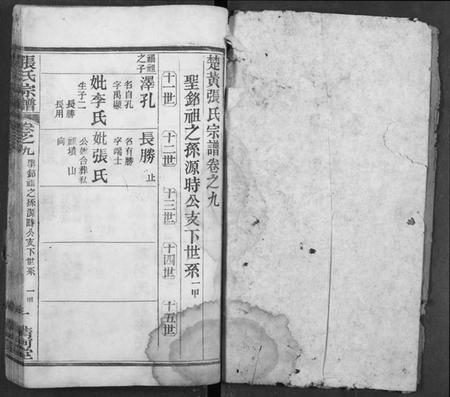 楚黃張氏宗譜卷之九
聖銘祖之孫源時公支下世系 一甲
十一世 十二世 十三世 十四世 十五世
福祖之子
澤孔
名自孔
字萬顯
妣李氏
生子二
長勝
長用
長勝 止
名有勝
字端士
妣張氏
公妣合葬私
祖墳山
向
張氏宗譜
卷之九
聖銘祖之孫源時公支下世系 一甲
一
清河堂